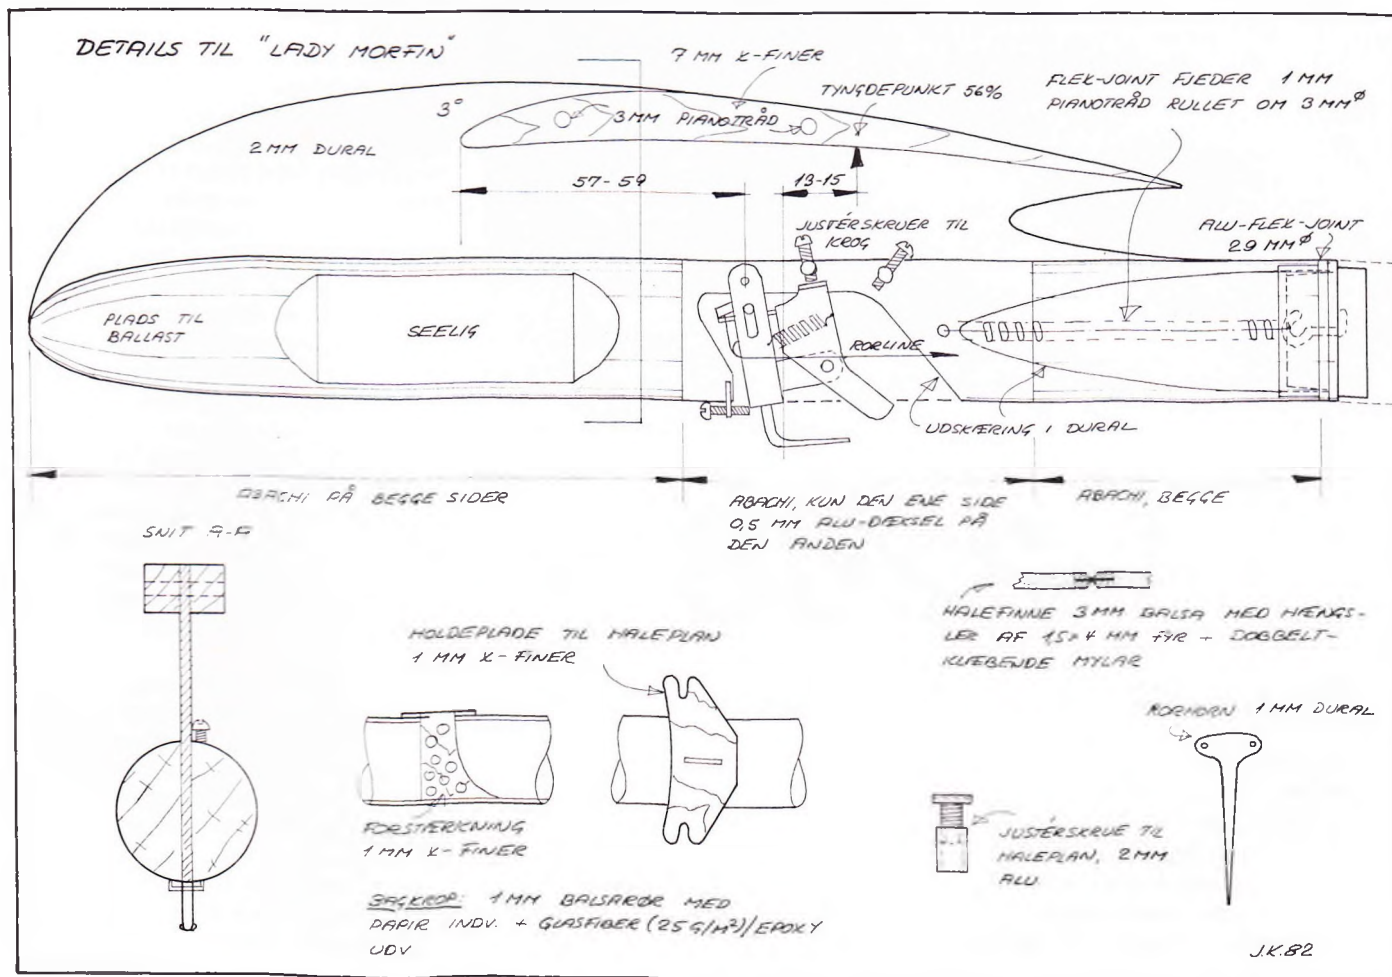 DETAILS TIL "LADY MORFIN"
7 MM X-FINER
TYNGDEPUNKT 56%
FLEX-JOINT FJEDER 1 MM
PIANOTRÅD RULLET OM 3 MM ø
3°
3 MM PIANOTRÅD
2 MM DURAL
57-59
13-15
JUSTÉRSKRUER TIL
KROG
ALU-FLEX-JOINT
29 MM ø
PLADS TIL
BALLAST
SEELIG
RORLINE
UDSKÆRING I DURAL
ABACHI PÅ BEGGE SIDER
ABACHI, KUN DEN ENE SIDE
0,5 MM ALU-DÆKSEL PÅ
DEN ANDEN
ABACHI, BEGGE
SNIT A-A
HALEFINNE 3 MM BALSA MED HÆNGS-
LER AF 1,5×4 MM FYR + DOBBELT-
KLÆBENDE MYLAR
HOLDEPLADE TIL HALEPLAN
1 MM X-FINER
RORHORN 1 MM DURAL
FORSTÆRKNING
1 MM X-FINER
JUSTÉRSKRUE TIL
HALEPLAN, 2MM
ALU.
BAGKROP: 1 MM BALSARØR MED
PAPIR INDV. + GLASFIBER (25 G/M²)/EPOXY
UDV
J.K.82